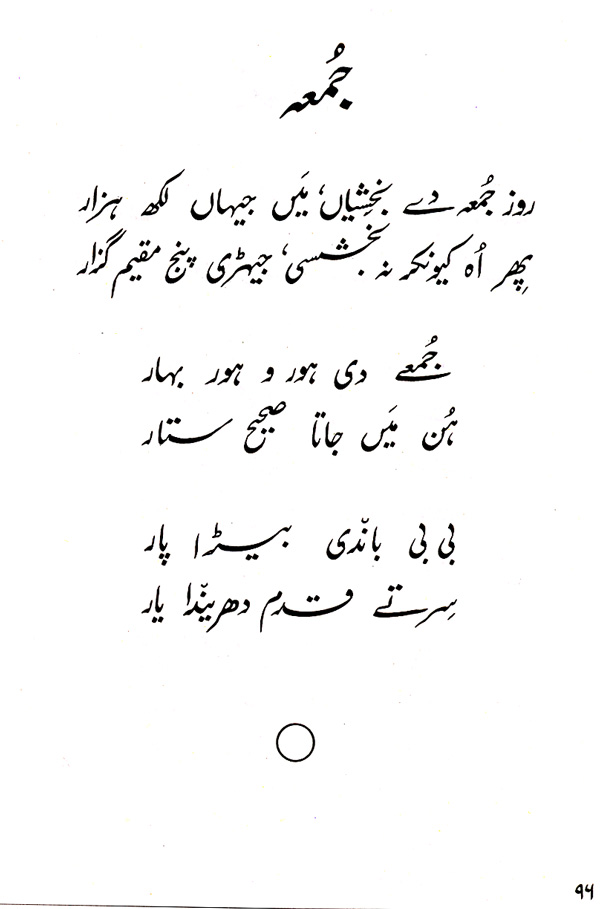 جُمعہ
روز جُمعہ دے بخشِیاں، مَیں جیہاں لکھ ہزار
پِھر اُہ کیونکر نہ بخشسی، جیہڑی پنج مقیم گزار
جُمعے دی ہور و ہور بہار
ہُن مَیں جاتا صحیح ستار
بی بی باندّی بیڑا پار
سِر تے قدم دھریندّا یار
۹۶